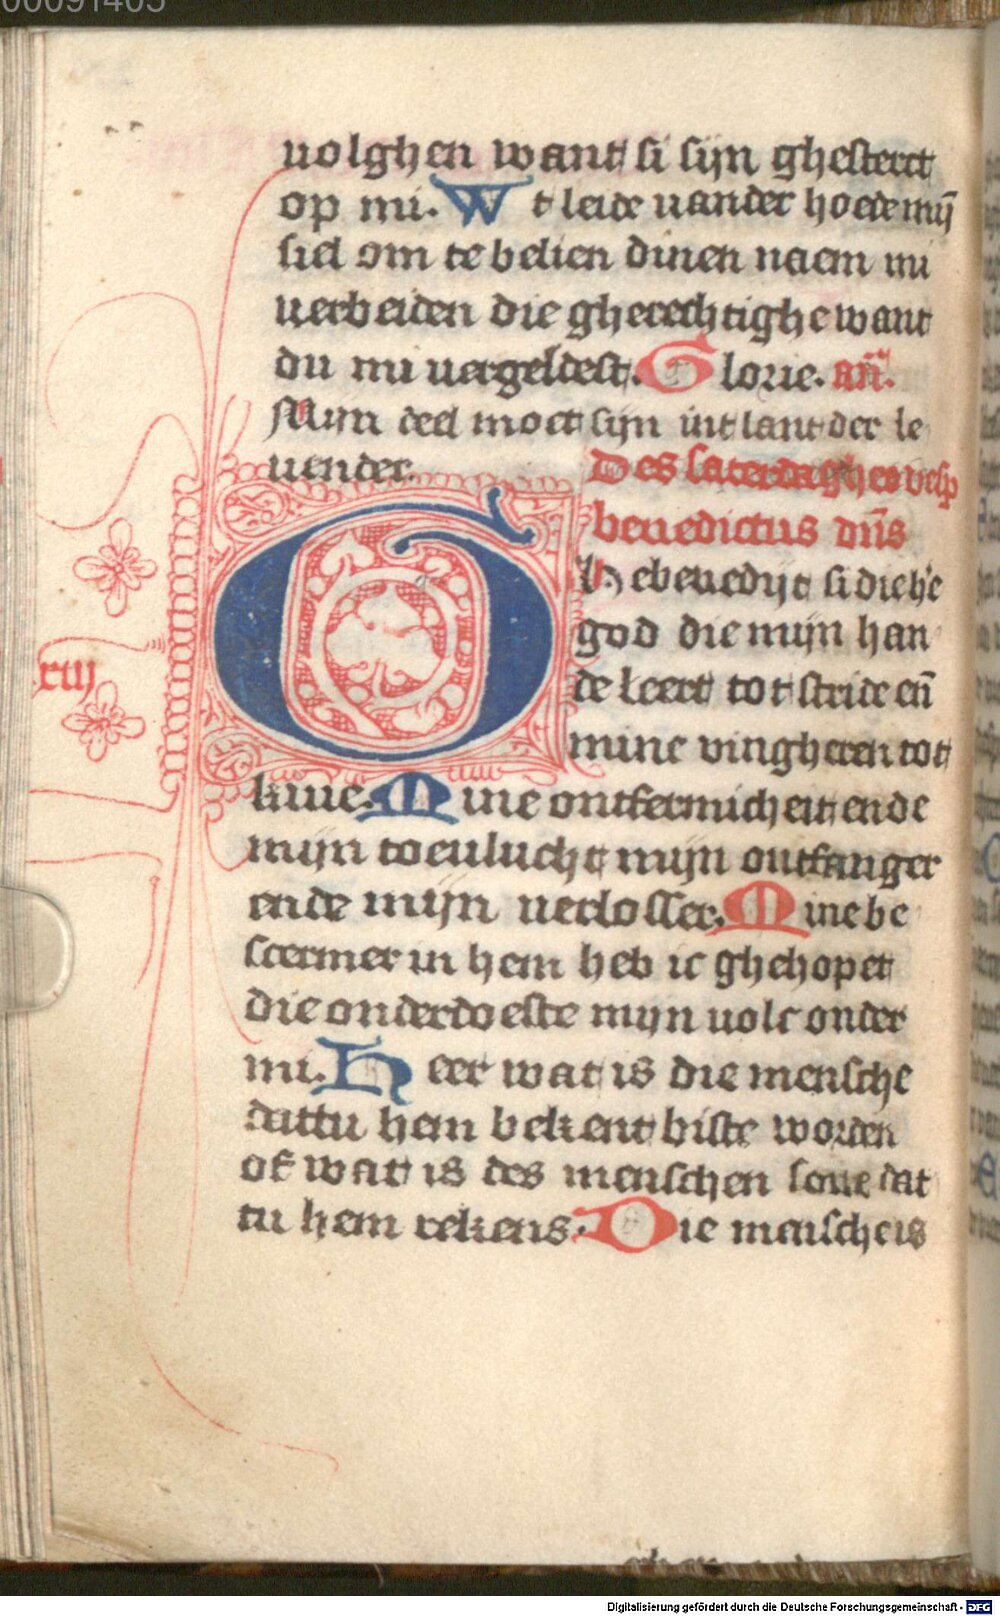 00091405
uolghen want si sijn ghesterct
op mi. Wt leide uander hoede mij̄
siel om te belien dinen naem mi
uerbeiden die gherechtighe want
du mi uergeldest. Glorie. an̄.
Mijn deel moet sijn int lant der le
uender. Des saterdaghes vesp
benedictus dn̄s
Ghebenedijt si die he
god die mijn han
de leert tot stride en̄
xiij
mine vingheren tot
kiue. Mine ontfermicheit ende
mijn toeulucht mijn ontfanger
ende mijn uerlosser. Mine be
scermer in hem heb ic ghehopet
die onderdoeste mijn uolc onder
mi. Heer wat is die mensche
dattu hem bekent biste worden
of wat is des menschen sone dat
tu hem rekens. Die mensche is
Digitalisierung gefördert durch die Deutsche Forschungsgemeinschaft - DFG